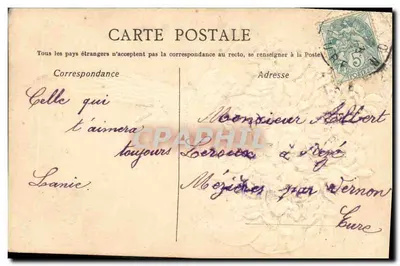 CARTE POSTALE
Tous les pays étrangers n'acceptent pas la correspondance au recto, se renseigner à la Poste
Correspondance
Adresse
5
Celle qui
t'aimera
toujours
Monsieur Albert
Leroux à
Mézières par Vernon
Eure
CPAPHIL